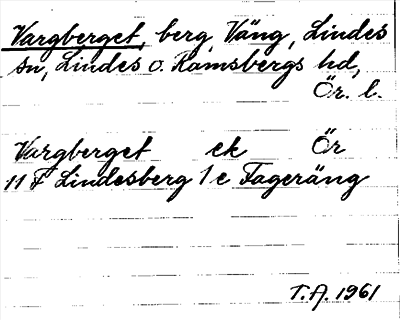 Vargberget, berg Väng, Lindes
sn, Lindes o. Ramsbergs hd,
Ör. l.
Vargberget ek Ör
11 F Lindesberg 1 e Fageräng
T.A. 1961